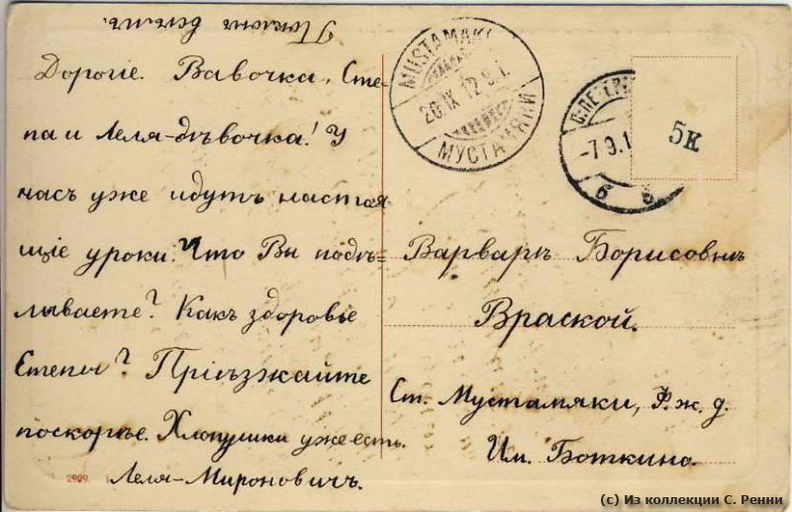 Поклонъ всѣмъ.
Дорогіе. Вавочка, Сте-
па и Леля-дѣвочка! У
насъ уже идутъ настоя
щіе уроки. Что Вы подѣ=
лываете? Какъ здоровье
Степы? Пріѣзжайте
поскорѣе. Хлопушки уже есть.
Леля-Мироновичъ.
MUSTAMÄKI
20 IX 12
МУСТАМЯКИ
-7.9.1
6 8
5к
Варварѣ Борисовнѣ
Враской.
Ст. Мустамяки, Ф. ж. д.
Им. Боткино.
2909
(c) Из коллекции С. Ренни